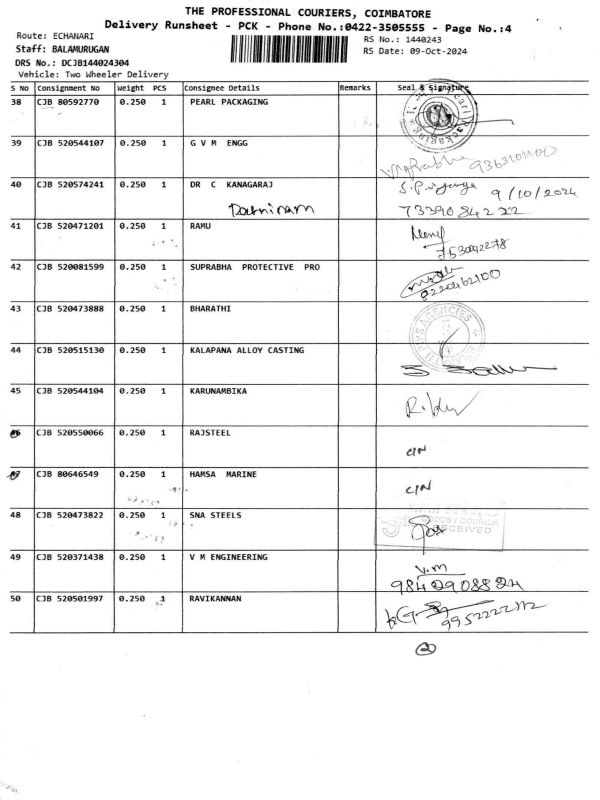 THE PROFESSIONAL COURIERS, COIMBATORE
Delivery Runsheet - PCK - Phone No.:0422-3505555 - Page No.:4
Route: ECHANARI
RS No.: 1440243
Staff: BALAMURUGAN
RS Date: 09-Oct-2024
DRS No.: DCJB144024304
Vehicle: Two Wheeler Delivery
S No Consignment No Weight PCS Consignee Details Remarks Seal & Signature
38 CJB 80592770 0.250 1 PEARL PACKAGING
39 CJB 520544107 0.250 1 G V M ENGG
40 CJB 520574241 0.250 1 DR C KANAGARAJ 9/10/2024
7339084222
41 CJB 520471201 0.250 1 RAMU
42 CJB 520081599 0.250 1 SUPRABHA PROTECTIVE PRO
43 CJB 520473888 0.250 1 BHARATHI
AGENCIES
44 CJB 520515130 0.250 1 KALAPANA ALLOY CASTING
45 CJB 520544104 0.250 1 KARUNAMBIKA
46 CJB 520550066 0.250 1 RAJSTEEL CIN
47 CJB 80646549 0.250 1 HAMSA MARINE CIN
48 CJB 520473822 0.250 1 SNA STEELS
GOODS / COURIER
RECEIVED
49 CJB 520371438 0.250 1 V M ENGINEERING V.M
9842908824
50 CJB 520501997 0.250 1 RAVIKANNAN
2